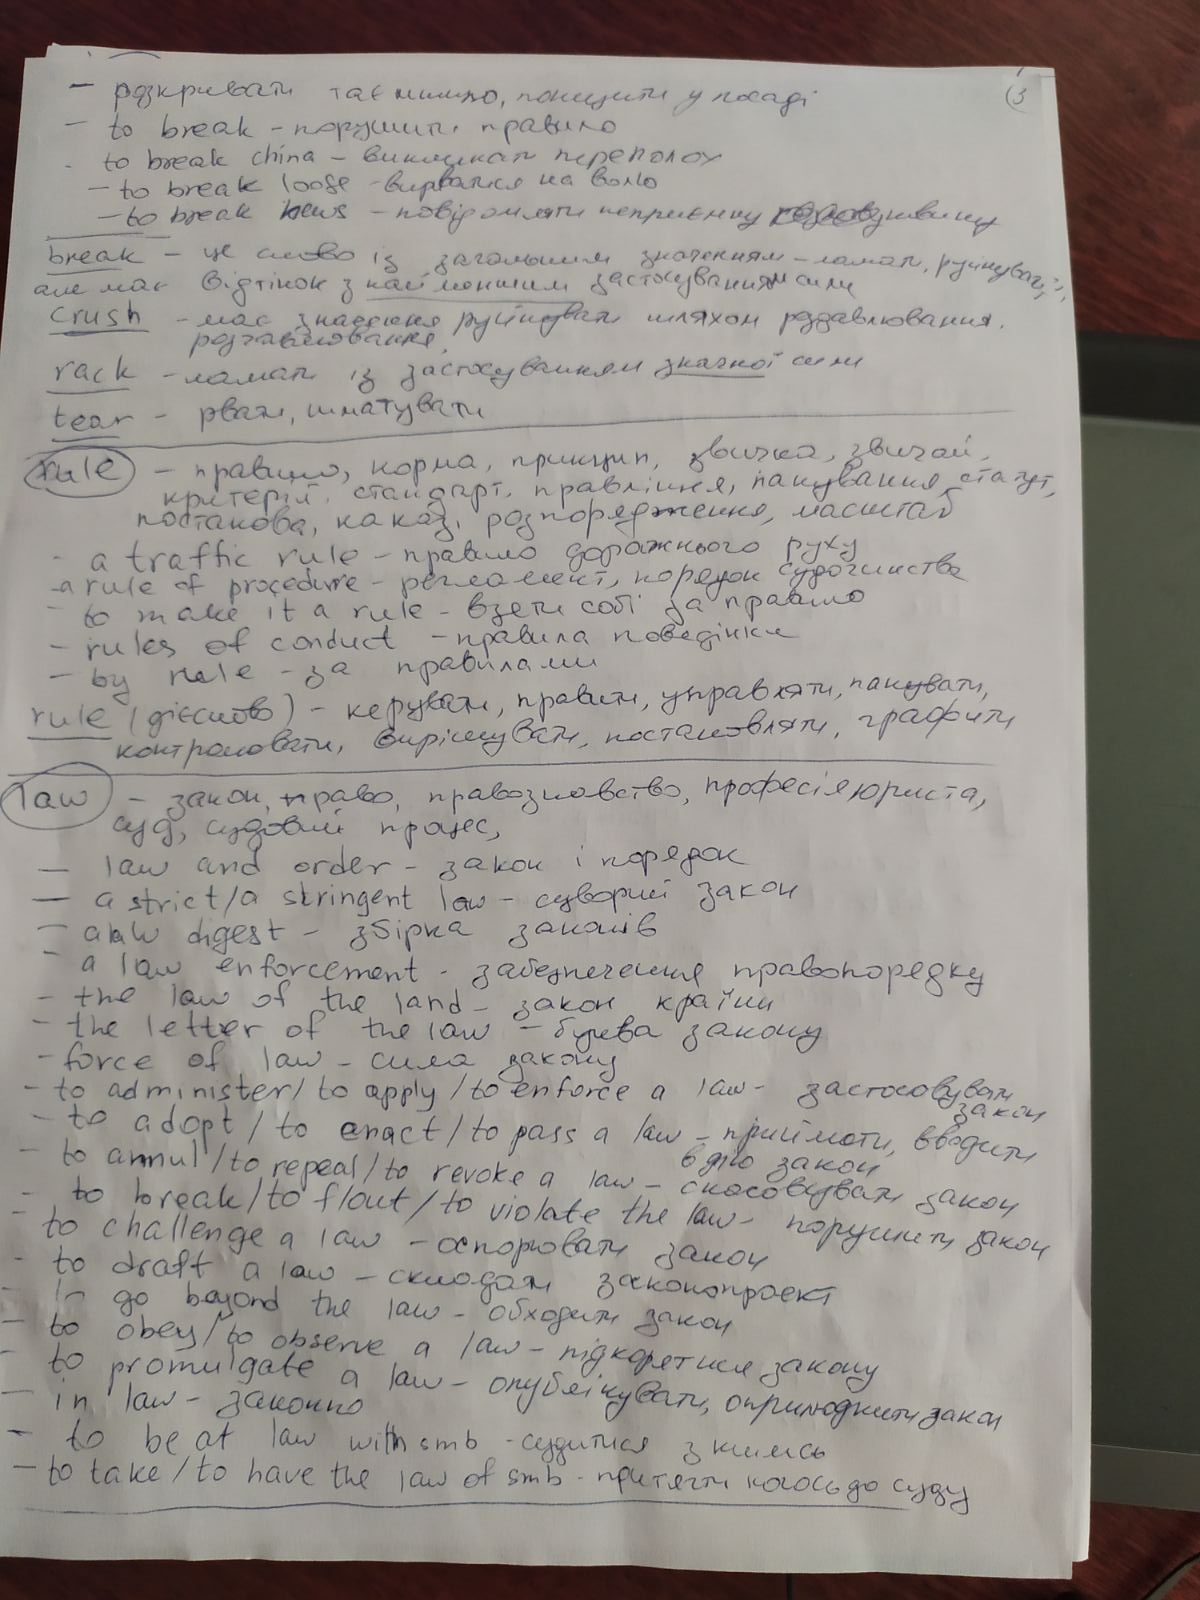 3
- розкривати таємницю, понизити у посаді
- to break - порушити правило
- to break china - викликати переполох
- to break loose - вирватися на волю
- to break news - повідомляти неприємну новину
break - це слово із загальним значенням - ламати, руйнувати,
але має відтінок з найменшим застосуванням сили
crush - має значення руйнувати шляхом роздавлювання,
розчавлювання
rack - ламати із застосуванням значної сили
tear - рвати, шматувати
rule - правило, норма, принцип, звичка, звичай,
критерій, стандарт, правління, панування, статут,
постанова, наказ, розпорядження, масштаб
- a traffic rule - правило дорожнього руху
- a rule of procedure - регламент, порядок судочинства
- to make it a rule - взяти собі за правило
- rules of conduct - правила поведінки
- by rule - за правилами
rule (дієслово) - керувати, правити, управляти, панувати,
контролювати, вирішувати, постановляти, графити
law - закон, право, правознавство, професія юриста,
суд, судовий процес,
- law and order - закон і порядок
- a strict/a stringent law - суворий закон
- a law digest - збірка законів
- a law enforcement - забезпечення правопорядку
- the law of the land - закон країни
- the letter of the law - буква закону
- force of law - сила закону
- to administer/to apply/to enforce a law - застосовувати
закон
- to adopt/to enact/to pass a law - приймати, вводити
в дію закон
- to annul/to repeal/to revoke a law - скасовувати закон
- to break/to flout/to violate the law - порушити закон
- to challenge a law - оспорювати закон
- to draft a law - складати законопроект
- to go beyond the law - обходити закон
- to obey/to observe a law - підкорятися закону
- to promulgate a law - опублікувати, оприлюднити закон
- in law - законно
- to be at law with smb - судитися з кимсь
- to take/to have the law of smb - притягти когось до суду